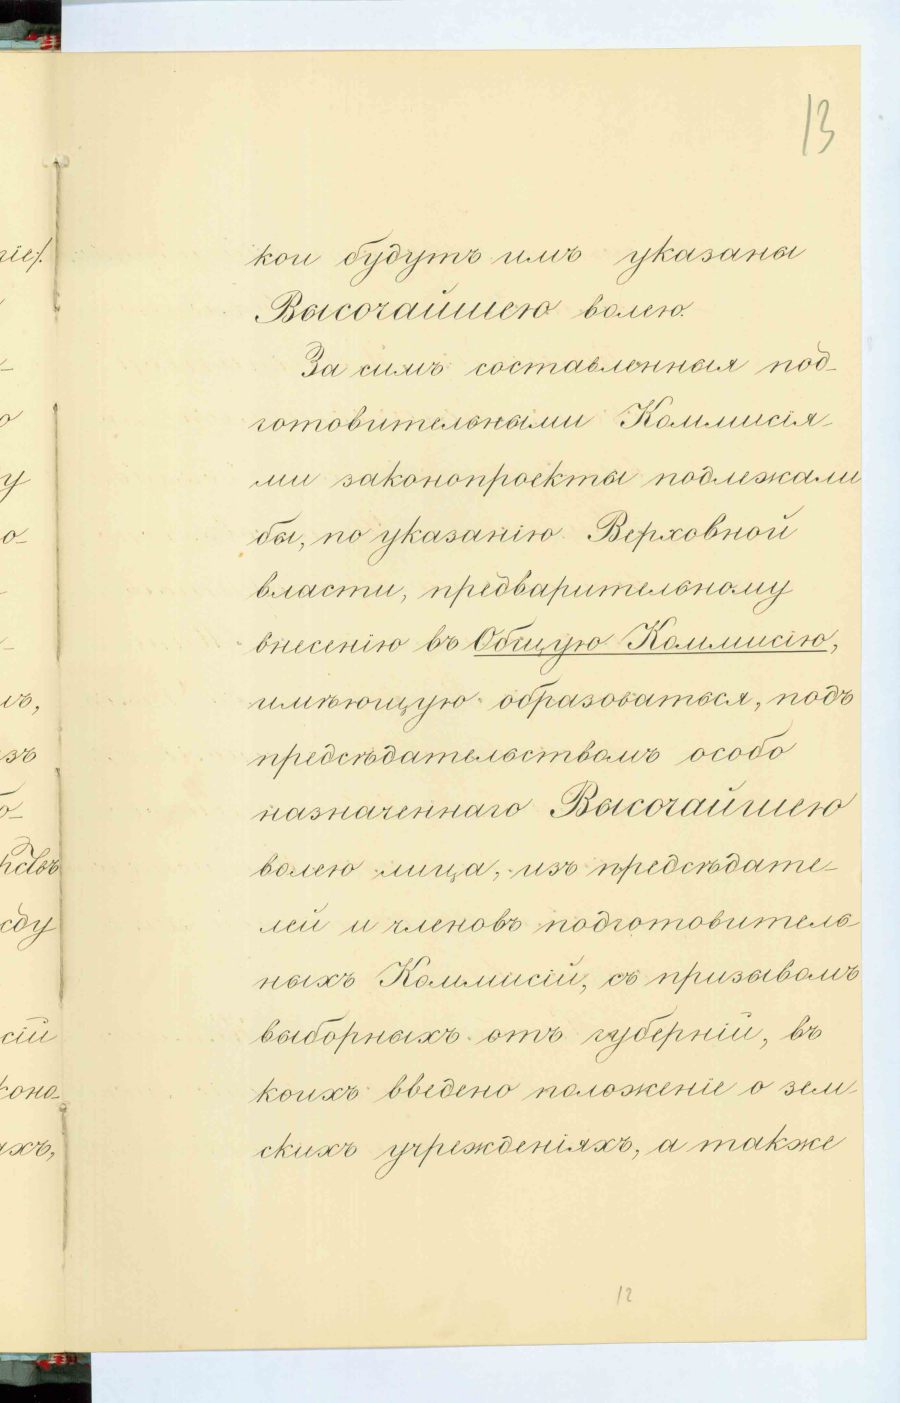 13
кои будутъ имъ указаны
Высочайшею волею.
За симъ составленныя под-
готовительными Коммисія-
ми законопроекты подлежали
бы, по указанію Верховной
власти, предварительному
внесенію въ Общую Коммисію,
имѣющую образоваться, подъ
предсѣдательствомъ особо
назначеннаго Высочайшею
волею лица, изъ предсѣдате-
лей и членовъ подготовитель-
ныхъ Коммисій, съ призывомъ
выборныхъ отъ губерній, въ
коихъ введено положеніе о зем-
скихъ учрежденіяхъ, а также
12